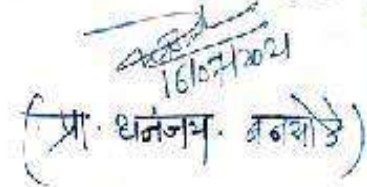 16/07/2021
(प्रा. धनंजय. बनसोडे)